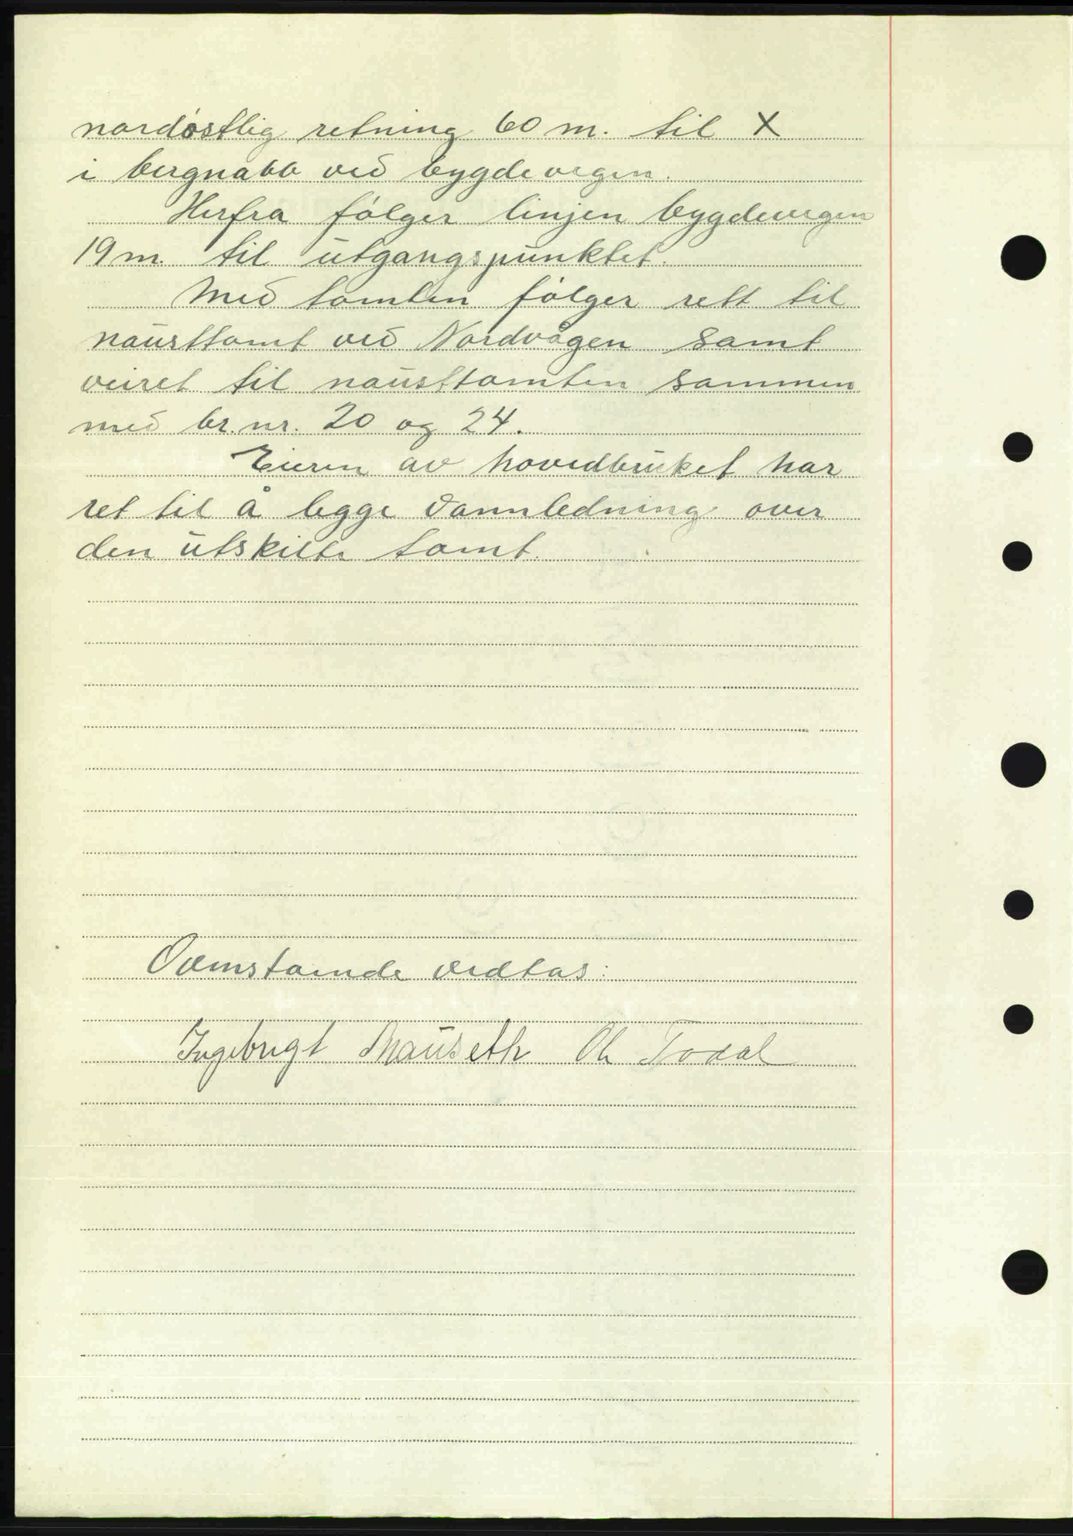 nordøstlig retning 60 m. til X
i bergnabb ved bygdevegen.
Herfra følger linjen bygdevegen
19 m. til utgangspunktet.
Med tomten følger rett til
nausttomt ved Nordvågen samt
veiret til nausttomten sammen
med br. nr. 20 og 24.
Eieren av hovedbruket har
ret til å legge vannledning over
den utskilte tomt.
Ovenstående vedtas:
Ingebrigt Mauseth Ole Todal